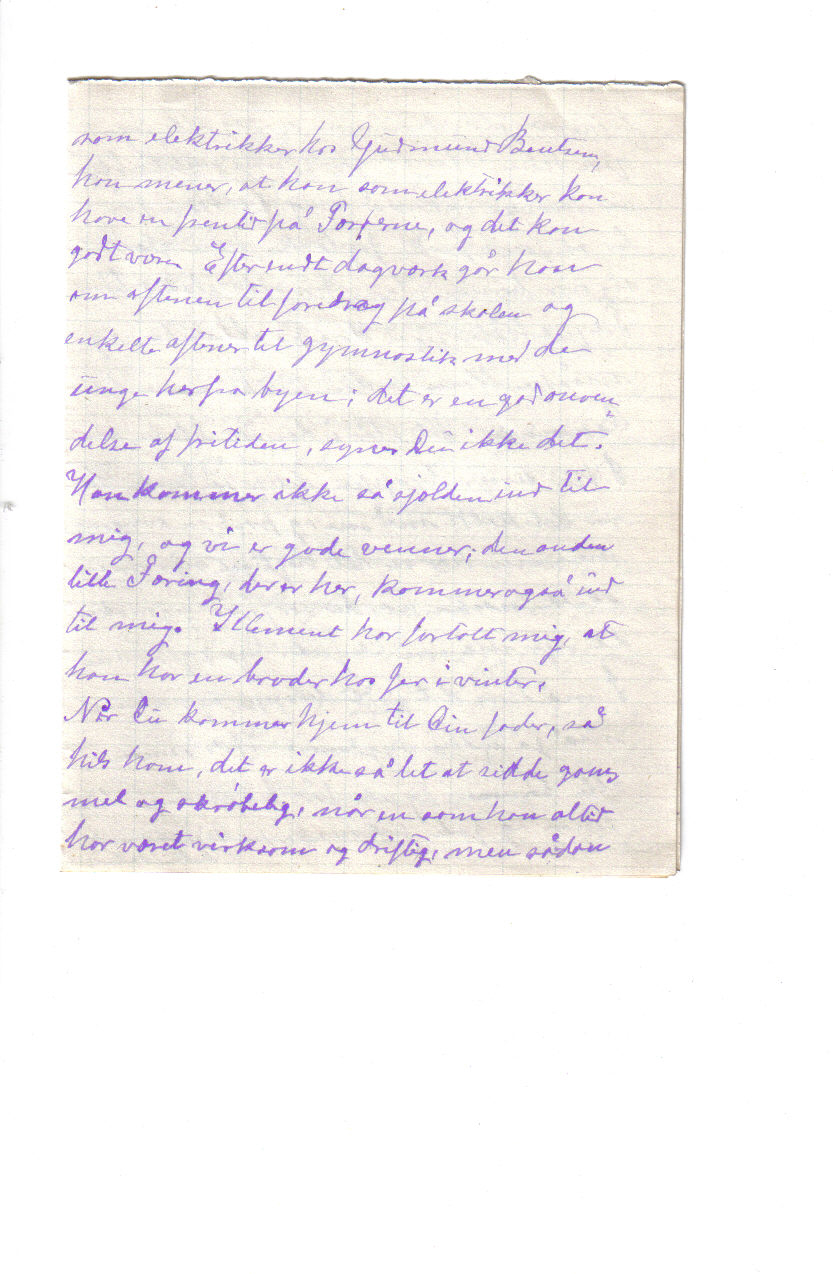 som elektrikker hos Gudmund Bentsen,
han mener, at han som elektrikker kan
have en fremtid på Færøerne, og det kan
godt være. Efter endt dagværk går han
om aftenen til foredrag på skolen og
enkelte aftener til gymnastik med de
unge herfra byen; det er en god anven„
delse af fritiden, synes Du ikke det.
Han kommer ikke så sjælden ind til
mig, og vi er gode venner; den anden
lille Færing, der er her, kommer også ind
til mig. Klement har fortalt mig, at
han har en broder hos Jer i vinter.
Når Du kommer hjem til Din fader, så
hils ham, det er ikke så let at sidde gam„
mel og skrøbelig, når en som han altid
har været virksom og driftig, men sådan